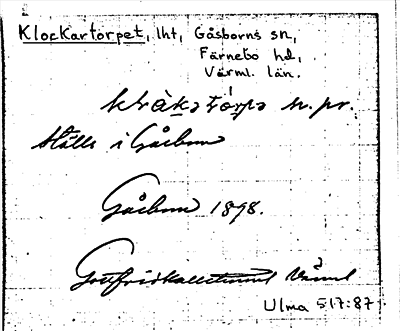 Klockartorpet, lht, Gåsborns sn,
Färnebo hd,
Värml. län.
n. pr.
Ställe i Gåsborn
Gåsborn 1898.
Gottfrid Kallstenius Värml
Ulma 517:87